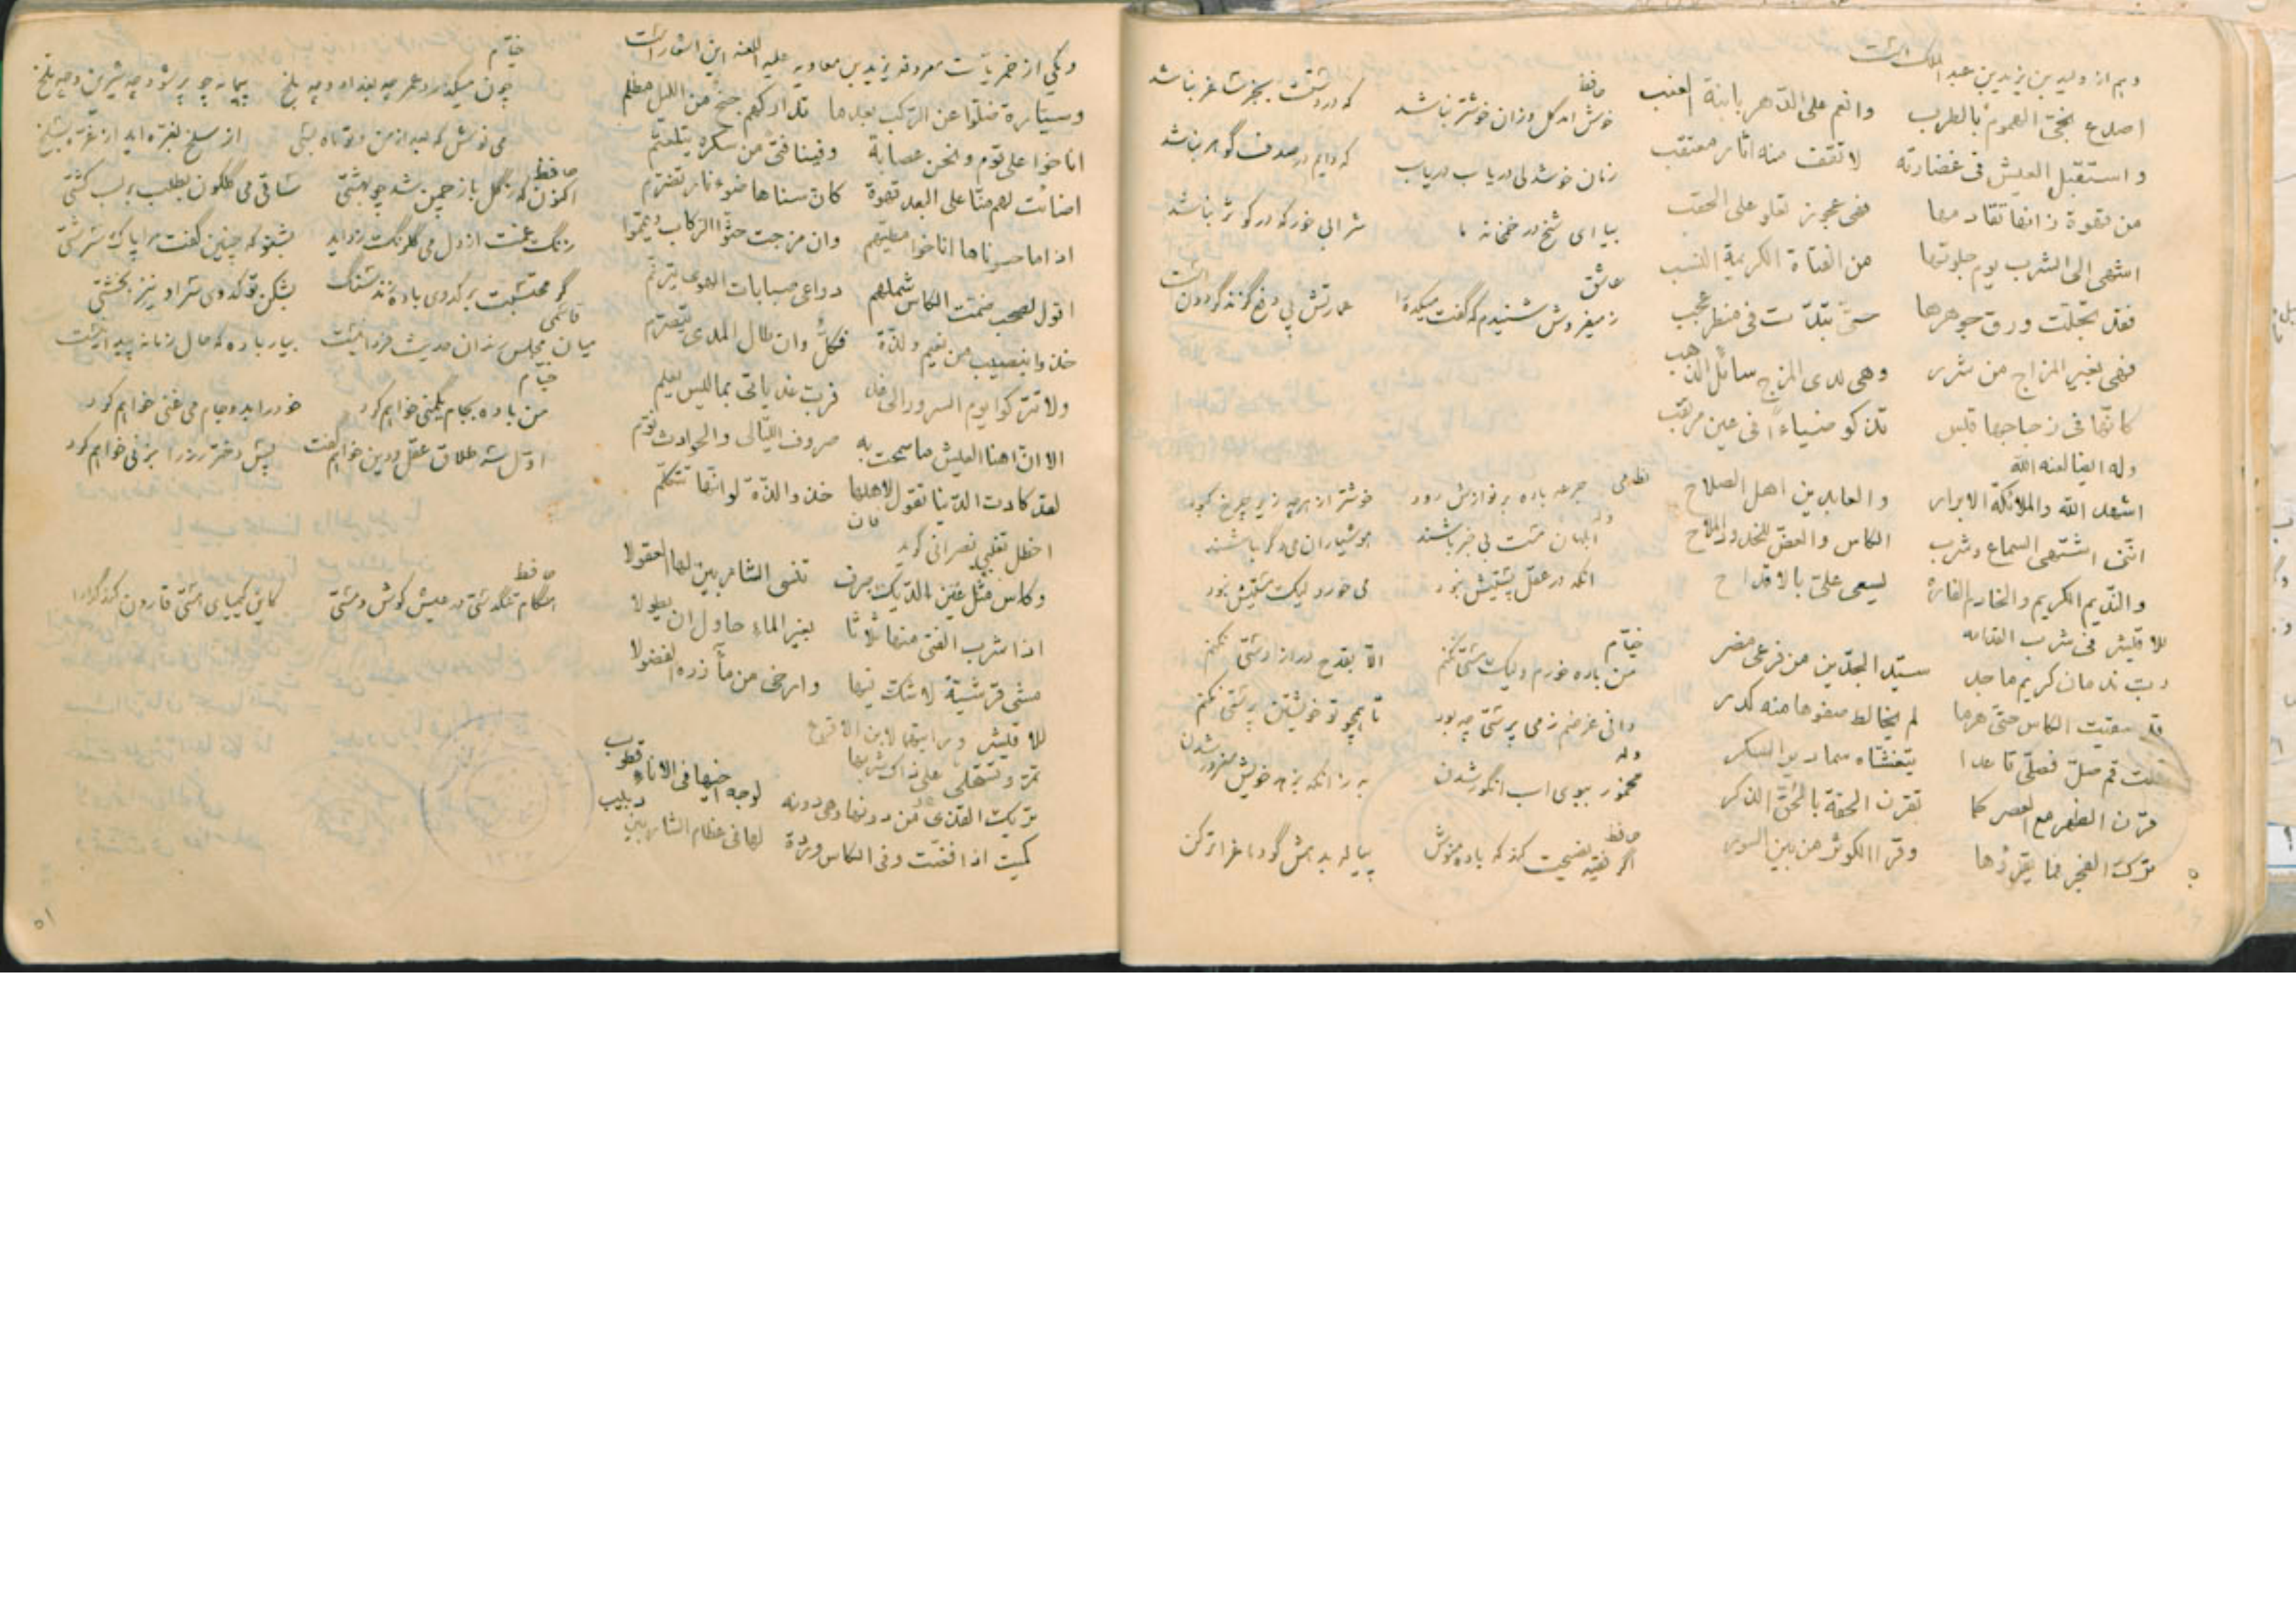 وهم از ولید بن یزید بن عبد الملک است
اصدع نجیّ الهموم بالطرب وانعم علی الدّهر بابنة العنب
واستقبل العیش فی غضارته لا تقف منه اثار معتقب
من قهوة زانها تقادمها فهی عجوز تعلو علی الحقب
اشهی الی الشرب یوم جلوتها من الفتاة الکریمة النسب
فقد تجلّت ورق جوهرها حتّی تبدّت فی منظر عجب
فهی بغیر المزاج من شرر وهی لدی المزج سائل الذهب
کانّها فی زجاجها قبس تذکو ضیاءً فی عین مرتقب
وله ایضا لعنه الله
اشهد الله والملائکة الابرار والعابدین اهل الصلاح
اننی اشتهی السماع وشرب الکاس والعضّ للخدود الملاح
والندیم الکریم والخادم الفاره یسعی علیّ بالاقداح
للاقیشر فی شرب المدامه
ربّ ندمان کریم ماجد سیّد الجدّین من فرعی مضر
قد سقیت الکاس حتّی هرها لم یخالط صفوها منه کدر
قلت قم صلّ فصلّی قاعدا یتغشّاه سمادیر السکر
قرن الظهر مع العصر کما تقرن الحقة بالحقّ الذکر
ترک الفجر فما یقرؤها وقرا الکوثر من بین السور
حافظ
خوش امد گل وزان خوشتر نباشد که در دستت بجز ساغر نباشد
زمان خوشدلی دریاب دریاب که دایم در صدف گوهر نباشد
بیا ای شیخ در خمخانه ما شرابی خور که در کوثر نباشد
عاشق
ز میفروش شنیدم که گفت میکده را عمارتش پی دفع گزند گردون است
نظامی
جرعه باده بر نوازش رود خوشتر از هرچه زیر چرخ کبود
وله
ابلهان مست بی خبر باشند هوشیاران می دگر باشند
انکه در عقل پستیش نبود می خورد لیک مستیش نبود
خیّام
من باده خورم ولیک مستی نکنم الّا بقدح دراز دستی نکنم
دانی غرضم ز می پرستی چه بود تا همچو تو خویشتن پرستی نکنم
وله
مخمور ببوی اب انگور شدن به زانکه بزهد خویش مغرور شدن
حافظ
اگر فقیه نصیحت کند که باده منوش پیاله بدهش گو دماغ را تر کن
ویکی از خمریّات معروفه یزید بن معاویه علیه اللعنه این اشعار است
وسیّارة ضلّوا عن الرکب بعدما تدارکهم جنح من اللیل مظلم
اناخوا علی قوم ونحن عصابة وفینا فتی من سکره یتلعثم
اضائت لهم منّا علی البعد قهوة کان سناها ضوء نار تضرّم
اذا ما حسوناها اناخوا مطیّهم وان مزجت حثّوا الرکاب ویمّموا
اقول لصحب ضمّت الکاس شملهم وداعی صبابات الهوی یترنّم
خذوا بنصیب من نعیم ولذّة فکلّ وان طال المدی یتصرّم
ولا تترکوا یوم السرور الی غد فربّ غد یاتی بما لیس یعلم
الا انّ اهنا العیش ما سمحت به صروف اللیالی والحوادث نوّم
لقد کادت الدّنیا تقول لاهلها خذوا لذّة لو انّها تتکلّم
اخطل تغلبی نصرانی گوید
وکاس مثل عین الدیک صرف تنسی الشاربین لها العقولا
اذا شرب الفتی منها ثلاثا بغیر الماء حاول ان یطولا
مشی قرشیّة لا شکّ فیها وارخی من مآزره الفضولا
تریک القذی من دونها وهی دونه لوجه اخیها فی الاناء قطوب
کمیت اذا فضّت وفی الکاس وردة لها فی عظام الشاربین دبیب
خیّام
چون میگذرد عمر چه بغداد وچه بلخ پیمانه چو پر شود چه شیرین وچه تلخ
می نوش که بعد از من وتو ماه بسی از سلخ بغرّه اید از غرّه بسلخ
حافظ
اکنون که ز گل باز چمن شد چو بهشتی ساقی می گلگون بطلب بر لب کشتی
گر محتسبت بر کدوی باده زند سنگ بشکن تو کدوی سر او نیز بخشتی
قاسمی
میان مجلس رندان حدیث فردا نیست بیار باده که حال زمانه پیدا نیست
خیّام
من باده بجام یکمنی خواهم کرد خود را بدو جام می غنی خواهم کرد
اوّل سه طلاق عقل ودین خواهم گفت پس دختر رز را بزنی خواهم کرد
حافظ
هنگام تنگدستی در عیش کوش ومستی کاین کیمیای هستی قارون کند گدا را
۵۱